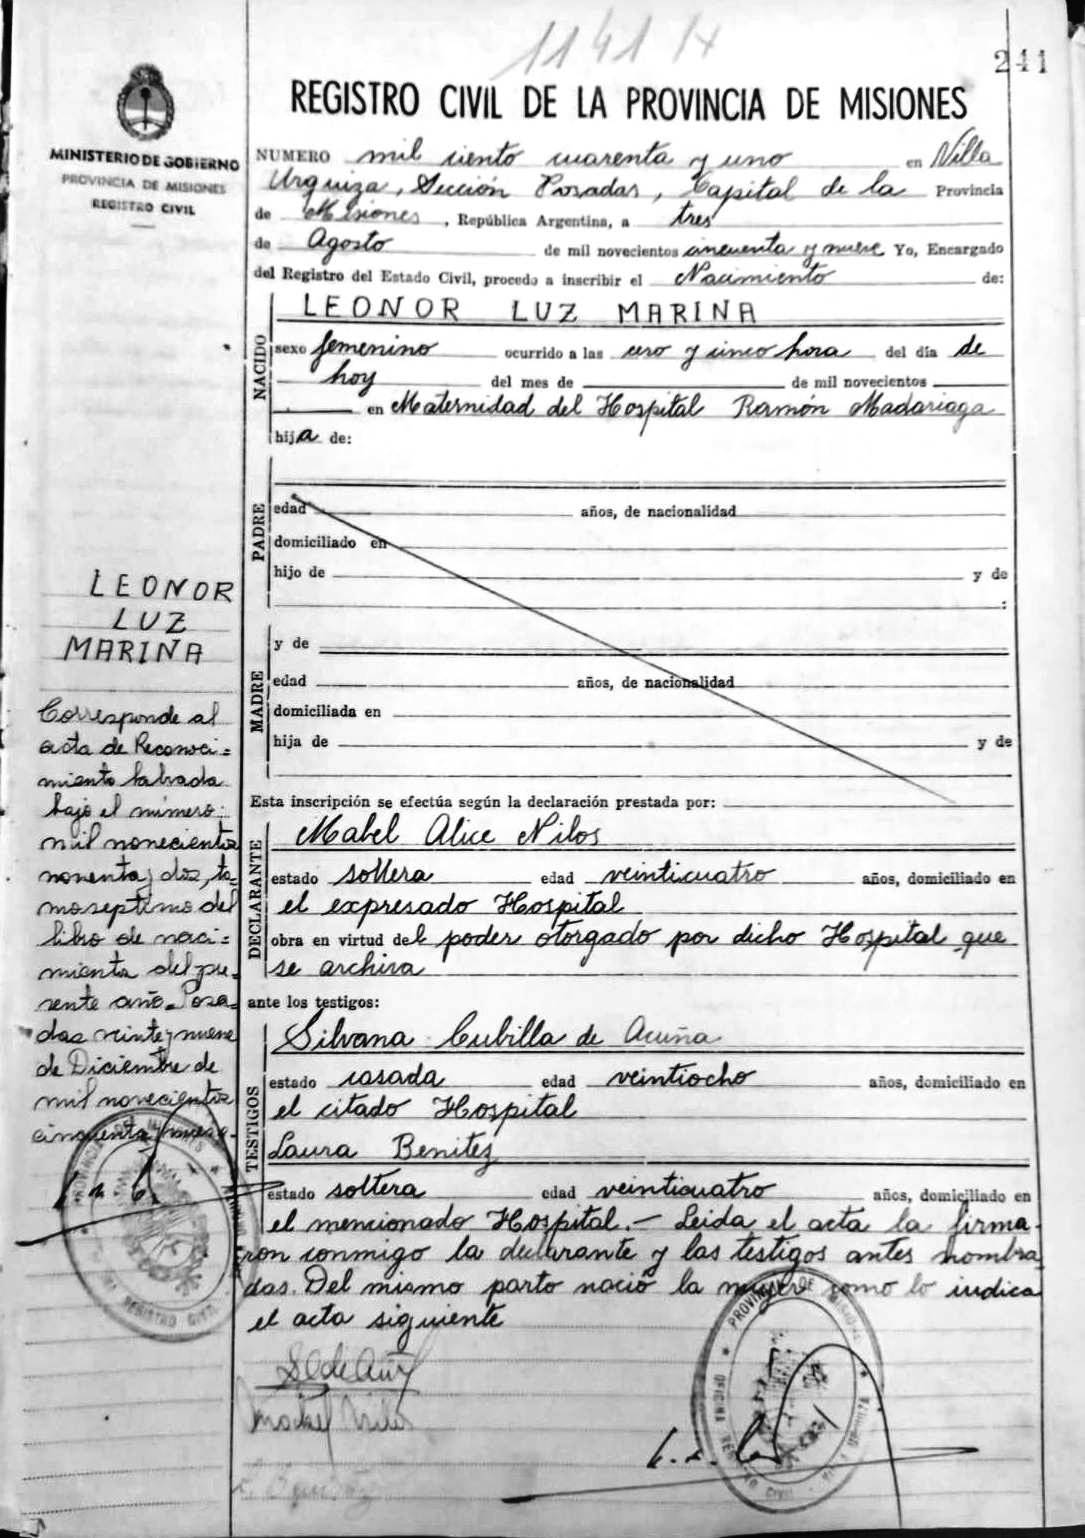 1141
241
MINISTERIO DE GOBIERNO
PROVINCIA DE MISIONES
REGISTRO CIVIL
REGISTRO CIVIL DE LA PROVINCIA DE MISIONES
NUMERO mil ciento cuarenta y uno en Villa
Urquiza, Sección Posadas, Capital de la Provincia
de Misiones, República Argentina, a tres
de Agosto de mil novecientos cincuenta y nueve Yo, Encargado
del Registro del Estado Civil, procedo a inscribir el Nacimiento de:
NACIDO
LEONOR LUZ MARINA
sexo femenino ocurrido a las cero y cinco hora del día de
hoy del mes de de mil novecientos
en Maternidad del Hospital Ramón Madariaga
hija de:
PADRE
edad años, de nacionalidad
domiciliado en
hijo de y de
:
MADRE
y de
edad años, de nacionalidad
domiciliada en
hija de y de
Esta inscripción se efectúa según la declaración prestada por:
DECLARANTE
Mabel Alice Nilos
estado soltera edad veinticuatro años, domiciliado en
el expresado Hospital
obra en virtud del poder otorgado por dicho Hospital que
se archiva
ante los testigos:
TESTIGOS
Silvana Cubilla de Acuña
estado casada edad veintiocho años, domiciliado en
el citado Hospital
Laura Benitez
estado soltera edad veinticuatro años, domiciliado en
el mencionado Hospital.- Leida el acta la firma-
ron conmigo la declarante y las testigos antes nombra-
das. Del mismo parto nació la mujer como lo indica
el acta siguiente
LEONOR
LUZ
MARINA
Corresponde al
acta de Reconoci=
miento labrada
bajo el número:
mil novecientos
noventa y dos, to-
mo septimo del
libro de naci=
miento del pre-
sente año. Posa-
das veinte y nueve
de Diciembre de
mil novecientos
cincuenta y nueve.
PROVINCIA DE MISIONES
REGISTRO CIVIL
PROVINCIA DE MISIONES